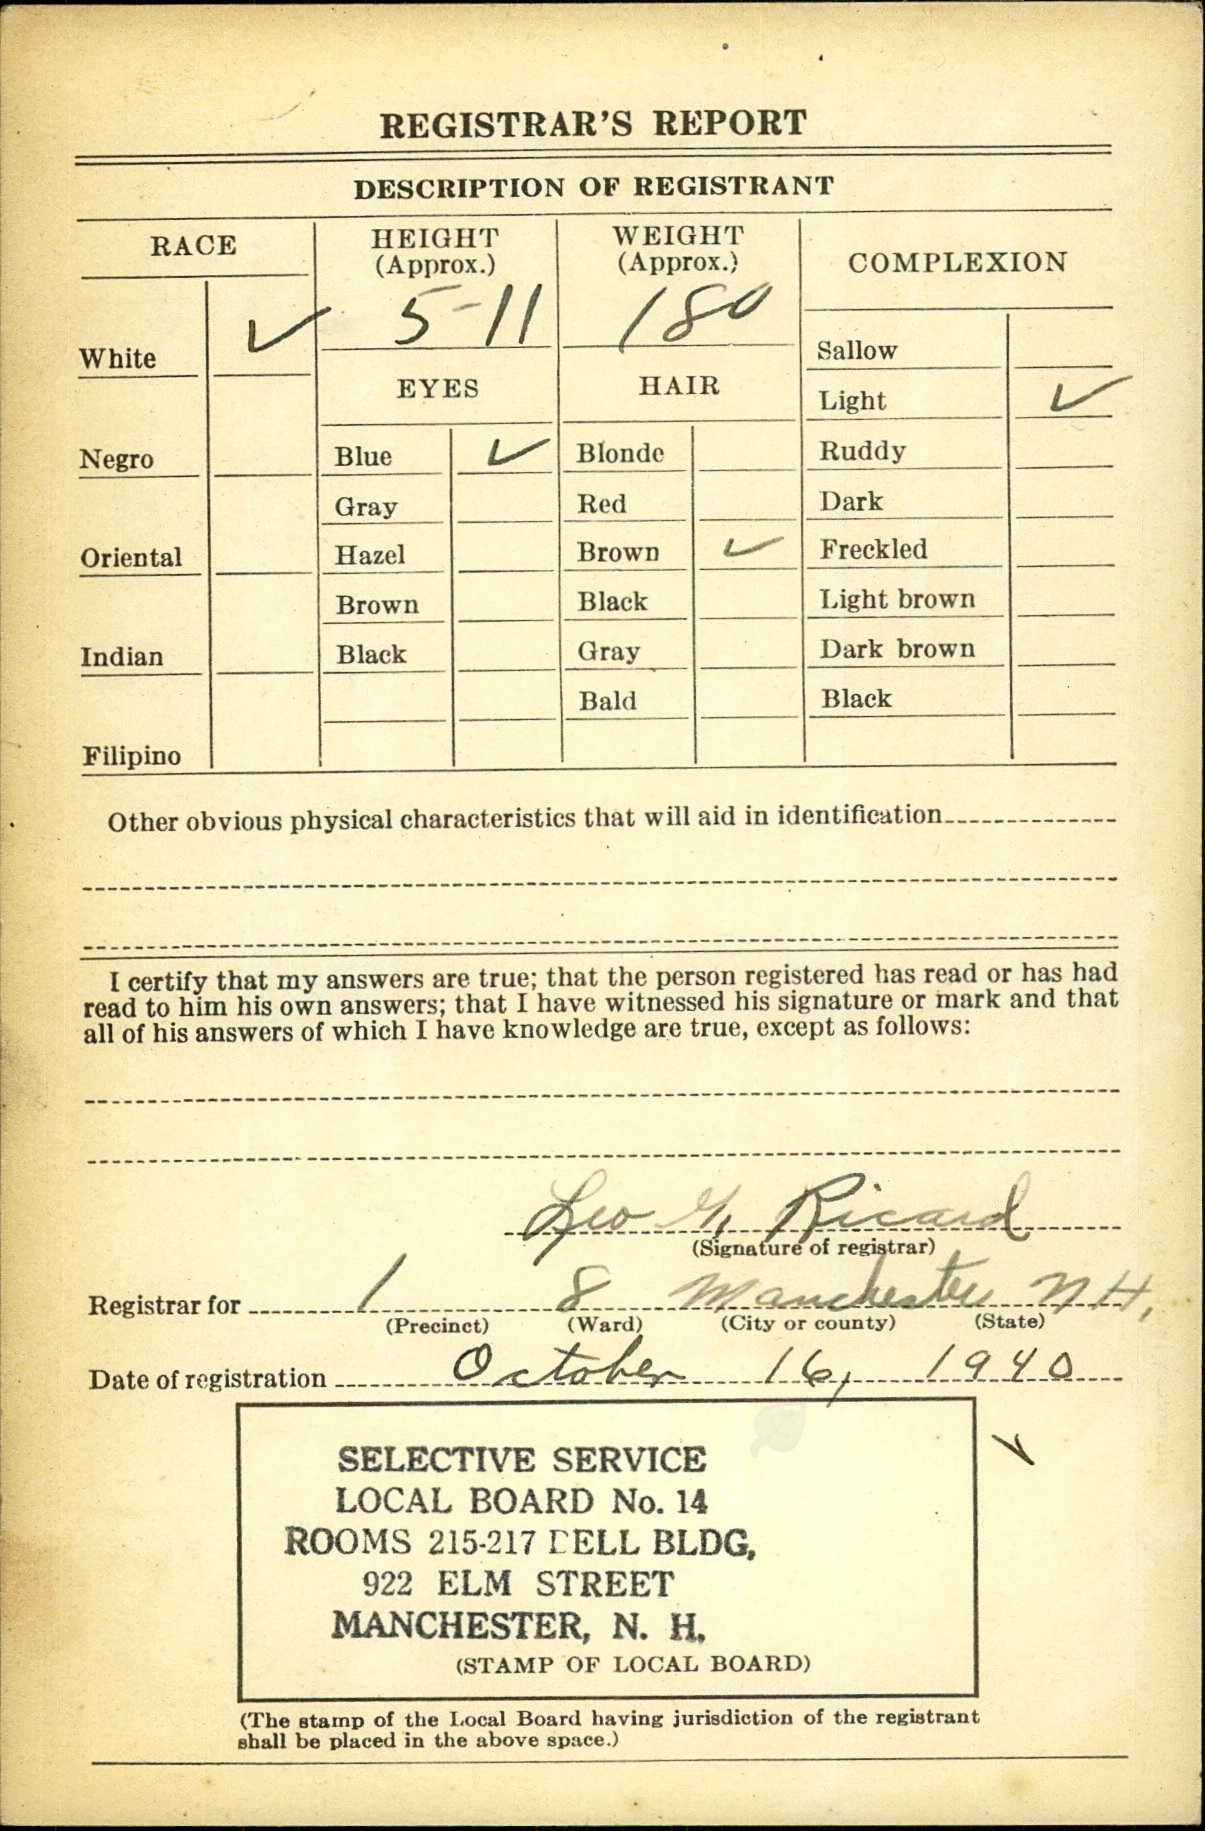 REGISTRAR'S REPORT
DESCRIPTION OF REGISTRANT
RACE
White ✓
Negro
Oriental
Indian
Filipino
HEIGHT
(Approx.)
5-11
EYES
Blue ✓
Gray
Hazel
Brown
Black
WEIGHT
(Approx.)
180
HAIR
Blonde
Red
Brown ✓
Black
Gray
Bald
COMPLEXION
Sallow
Light ✓
Ruddy
Dark
Freckled
Light brown
Dark brown
Black
Other obvious physical characteristics that will aid in identification
I certify that my answers are true; that the person registered has read or has had
read to him his own answers; that I have witnessed his signature or mark and that
all of his answers of which I have knowledge are true, except as follows:
Leo G. Ricard
(Signature of registrar)
Registrar for 1 8 Manchester N H.
(Precinct) (Ward) (City or county) (State)
Date of registration October 16, 1940
SELECTIVE SERVICE
LOCAL BOARD No. 14
ROOMS 215-217 BELL BLDG,
922 ELM STREET
MANCHESTER, N. H.
(STAMP OF LOCAL BOARD)
(The stamp of the Local Board having jurisdiction of the registrant
shall be placed in the above space.)